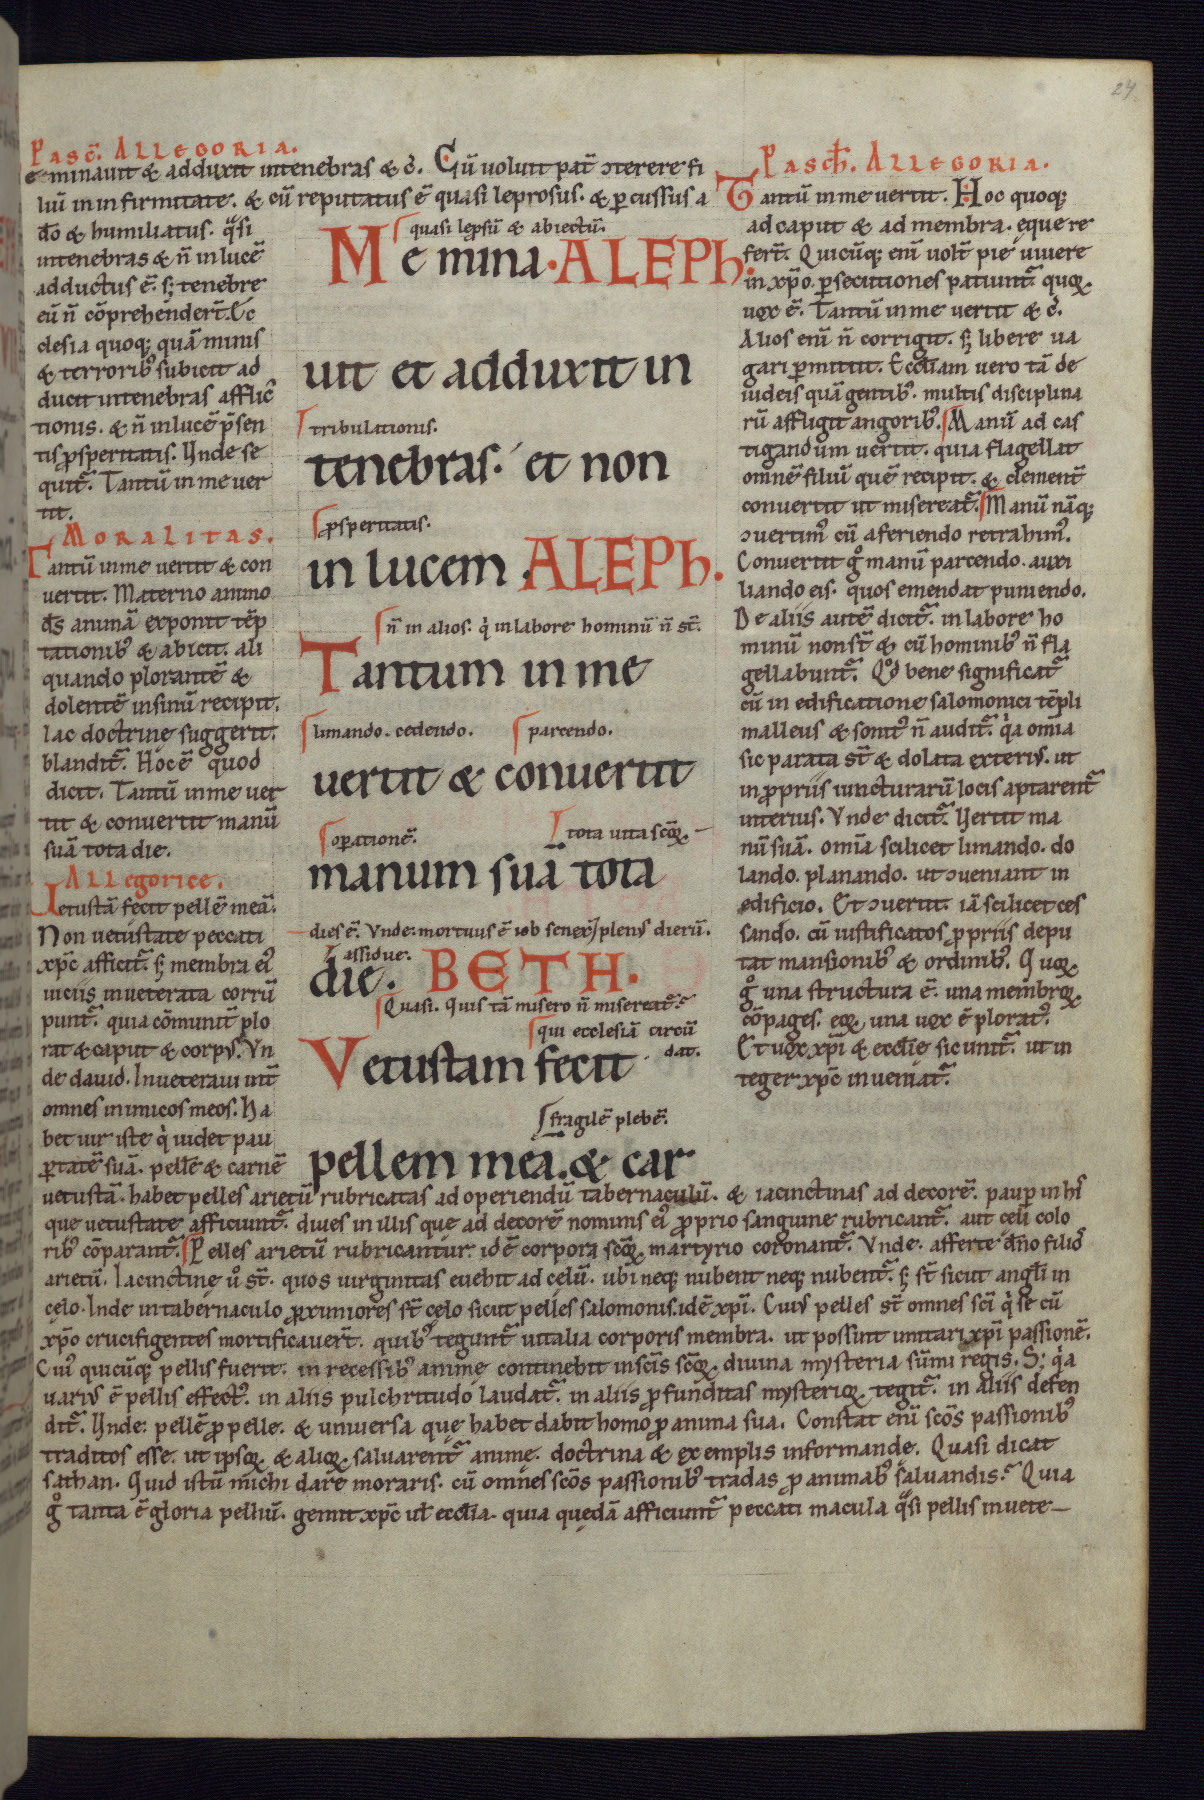 24
Pasc̄. ALLEGORIA.
e minauit & adduxit in tenebras & c̄. Cū uoluit pat̄ ↄterere fi
liū in infirmitate. & cū reputatus ē quasi leprosus. & ꝑcussus a
dō & humiliatus. q̄si
in tenebras & ñ in lucē
adductus ē. sꝫ tenebre
eū ñ cōprehendert̄. Ec
clesia quoqꝫ quā minis
& terroribꝰ subicit ad
ducit in tenebras afflic
tionis. & ñ in lucē p̄sen
tis ꝓsperitatis. Unde se
quit̄. Tantū in me uer
tit.
MORALITAS.
Tantū in me uertit & con
uertit. Materno animo
ds̄ animā exponit tēp
tationibꝰ & abicit. ali
quando plorantē &
dolentē in sinū recipit.
lac doctrinę suggerit.
blandit̄. Hoc ē quod
dicit. Tantū in me uer
tit & conuertit manū
suā tota die.
ALLegorice.
Uetustā fecit pellē meā.
Non uetustate peccati
xp̄c afficit̄. sꝫ membra eiꝰ
uiciis inueterata corrū
punt̄. quia cōmunit̄ plo
rat & caput & corpꝰ. Vn
de dauid. Inueteraui int̄
omnes inimicos meos. Ha
bet uir iste q̇ uidet pau
ꝑtatē suā. pellē & carnē
quasi lep̄sū & abiectū.
Me mina. ALEPh.
uit et adduxit in
tribulationis.
tenebras. et non
ꝓsperitatis.
in lucem. ALEPh.
ñ in alios. q̇ in labore hominū ñ st̄.
Tantum in me
limando. cedendo. parcendo.
uertit & conuertit
oꝑationē. tota uita scōꝝ
manum suā tota
dies ē. Vnde. mortuus ē iob senex / plenꝰ dierū.
ł assidue.
die. BETH.
Quasi. Quis tā misero ñ misereat̄.
qui ecclesiā circū
dat.
Vetustam fecit
fragilē plebē.
pellem mea. & car
Pasch̄. ALLEGORIA.
Tantū in me uertit. Hoc quoqꝫ
ad caput & ad membra. eque re
fert̄. Quicūqꝫ enī uolt̄ pie uiuere
in xp̄o. ꝑsecutiones patiunt̄. quoꝝ
uox ē. Tantū in me uertit & c̄.
Alios enī ñ corrigit. sꝫ libere ua
gari ꝑmittit. Eccl̄iam uero tā de
iudeis quā gentibꝰ. multis disciplina
rū affligit angoribꝰ. Manū ad cas
tigandum uertit. quia flagellat
omnē filiū quē recipit. & clement̄
conuertit ut misereat̄. Manū nāqꝫ
ↄuertimꝰ cū a feriendo retrahimꝰ.
Conuertit gͦ manū parcendo. auxi
liando eis. quos emendat puniendo.
De aliis autē dicit̄. in labore ho
minū non st̄ & cū hominibꝰ ñ fla
gellabunt̄. Qd̄ bene significat̄
cū in edificatione salomonici tēpli
malleus & sonitꝰ ñ audit̄. q̇a om̄ia
sic parata st̄ & dolata exteriꝰ. ut
in ꝓpriis iuncturarū locis aptarent̄
interius. Vnde dicit̄. Uertit ma
nū suā. om̄ia scilicet limando. do
lando. planando. ut ↄueniant in
edificio. Et ↄuertit. iā scilicet ces
sando. cū iustificatos ꝓpriis depu
tat mansionibꝰ & ordinibꝰ. Quoꝝ
gͦ una structura ē. una membroꝝ
cōpages. eoꝝ una uox ē ploratꝰ.
Et uox xp̄i & eccl̄ie sic unit̄. ut in
teger xp̄c inueniat̄.
uetustā. habet pelles arietū rubricatas ad operiendū tabernaculū. & iacinctinas ad decorē. pauꝑ in hiꝰ
que uetustate afficiunt̄. diues in illis que ad decorē nominis eiꝰ ꝓprio sanguine rubricant̄. aut celi colo
ribꝰ cōparant̄. Pelles arietū rubricantur. idē corpora scōꝝ martyrio coronant̄. Vnde. afferte dn̄o filios
arietū. Iacinctine ů st̄. quos uirginitas euehit ad celū. ubi neqꝫ nubent neqꝫ nubent̄. sꝫ st̄ sicut angl̄i in
cęlo. Inde in tabernaculo ꝓximiores st̄ cęlo sicut pelles salomonis. idē xp̄i. Cuiꝰ pelles st̄ omnes scī q̇ se cū
xp̄o crucifigentes mortificauert̄. quibꝰ tegunt̄ uitalia corporis membra. ut possint imitari xp̄i passionē.
Cuiꝰ quicūqꝫ pellis fuerit. in recessibꝰ animę continebit in scīs scōꝝ. diuina mysteria sūmi regis. Sꝫ q̇a
uariꝰ ē pellis effectꝰ. in aliis pulchritudo laudat̄. in aliis ꝓfunditas mysterioꝝ tegit̄. in aliis defen
dit̄. Unde. pellē ꝓ pelle. & uniuersa quę habet dabit homo ꝓ anima sua. Constat enī scōs passionibꝰ
traditos esse. ut ipsoꝝ & alioꝝ saluarent̄ anime. doctrina & exemplis informande. Quasi dicat
sathan. Quid istū michi dare moraris. cū omnes scōs passionibꝰ tradas ꝓ animabꝰ saluandis. Quia
gͦ tanta ē gloria pelliū. gemit xp̄c ut̄ eccl̄ia. quia quędā afficiunt̄ peccati macula q̄si pellis inuete-